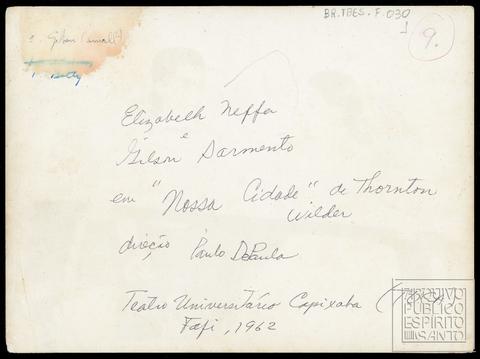 BR.TBES.F.030
9.
Elizabelh Neffa
e
Gilson Sarmento
em "Nossa Cidade" de Thornton
Wilder
direção Paulo DePaula
Teatro Universitário Capixaba
Fafi, 1962
ARQUIVO
PUBLICO
ESPIRITO
SANTO